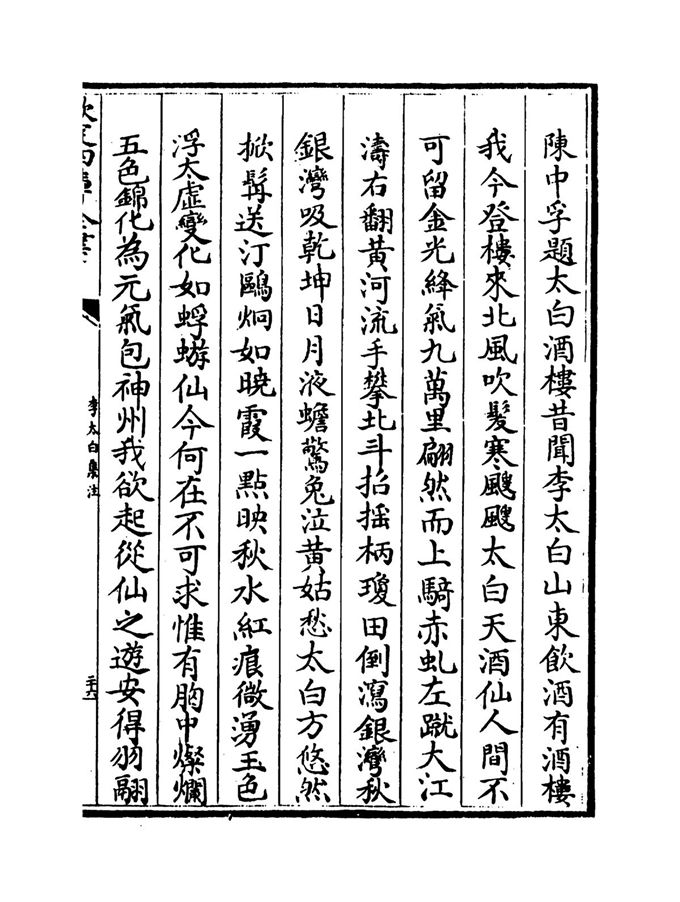 陳中孚題太白酒樓昔聞李太白山東飲酒有酒樓
我今登樓來北風吹髮寒颼颼太白天酒仙人間不
可留金光絳氣九萬里翩然而上騎赤虬左蹴大江
濤右翻黄河流手攀北斗招摇柄瓊田倒瀉銀灣秋
銀灣吸乾坤日月液蟾驚兔泣黄姑愁太白方悠然
掀髯送汀鷗炯如曉霞一點映秋水紅痕微湧玉色
浮太虚變化如蜉蝣仙今何在不可求惟有胸中燦爛
五色錦化為元氣包神州我欲起從仙之遊安得羽翮
欽定四庫全書
李太白集注
三十六